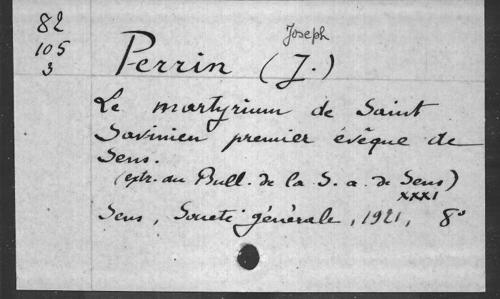 82
105
3
Joseph
Perrin (J.)
Le martyrium de Saint
Savinien premier évêque de
Sens.
(extr. du Bull. de la S. a. de Sens)
XXXI
Sens, Société générale, 1921, 8°